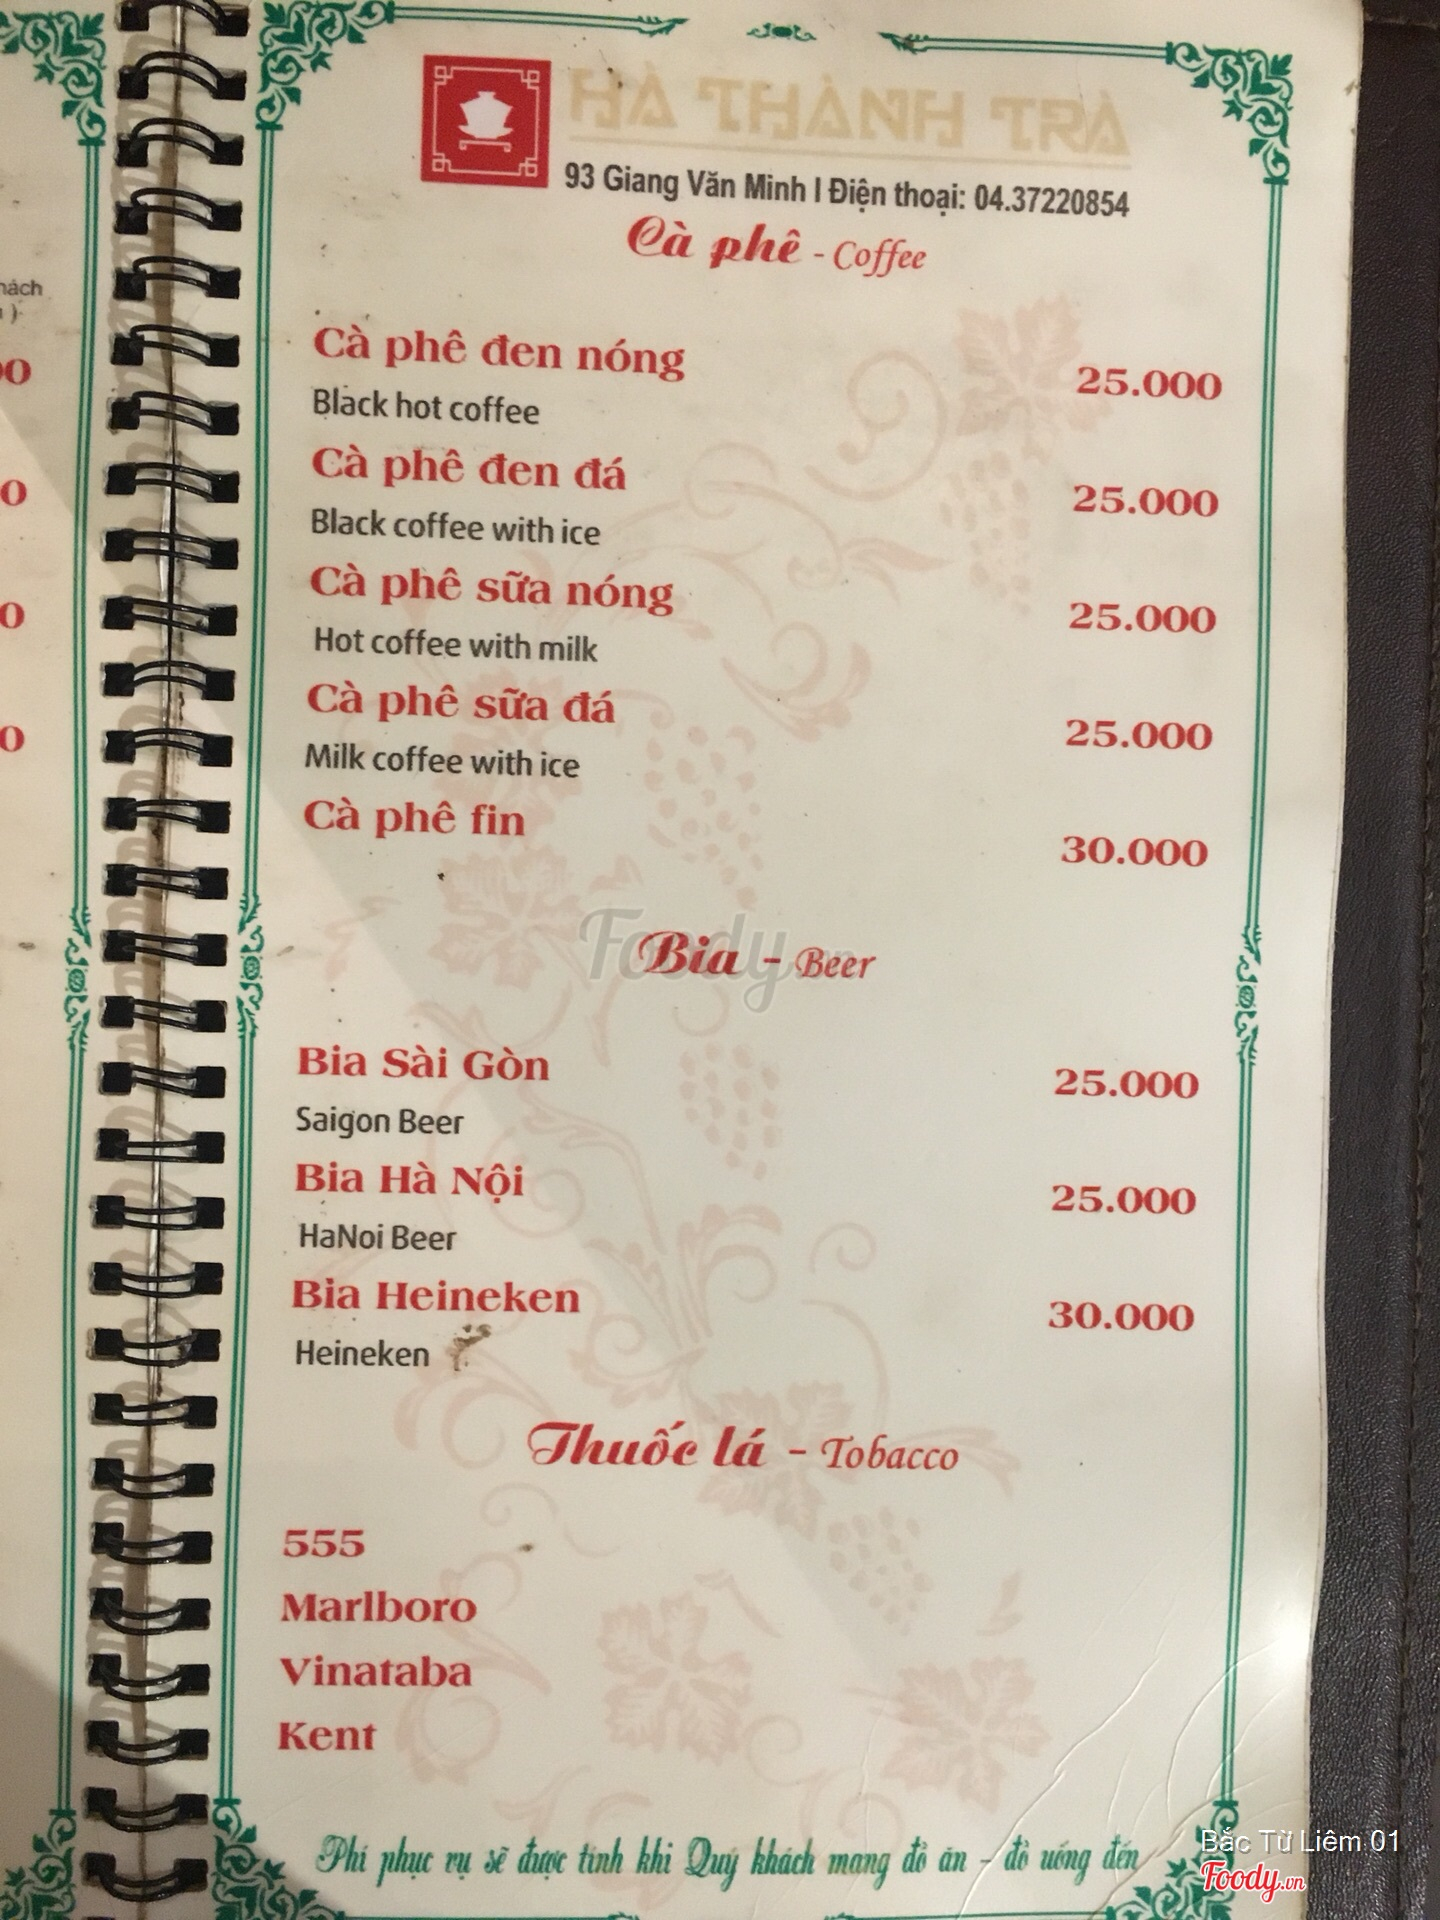 HÀ THÀNH TRÀ
93 Giang Văn Minh I Điện thoại: 04.37220854
Cà phê - Coffee
Cà phê đen nóng 25.000
Black hot coffee
Cà phê đen đá 25.000
Black coffee with ice
Cà phê sữa nóng 25.000
Hot coffee with milk
Cà phê sữa đá 25.000
Milk coffee with ice
Cà phê fin 30.000
Foody.vn
Bia - Beer
Bia Sài Gòn 25.000
Saigon Beer
Bia Hà Nội 25.000
HaNoi Beer
Bia Heineken 30.000
Heineken
Thuốc lá - Tobacco
555
Marlboro
Vinataba
Kent
Phí phục vụ sẽ được tính khi Quý khách mang đồ ăn - đồ uống đến
Bắc Từ Liêm 01
Foody.vn